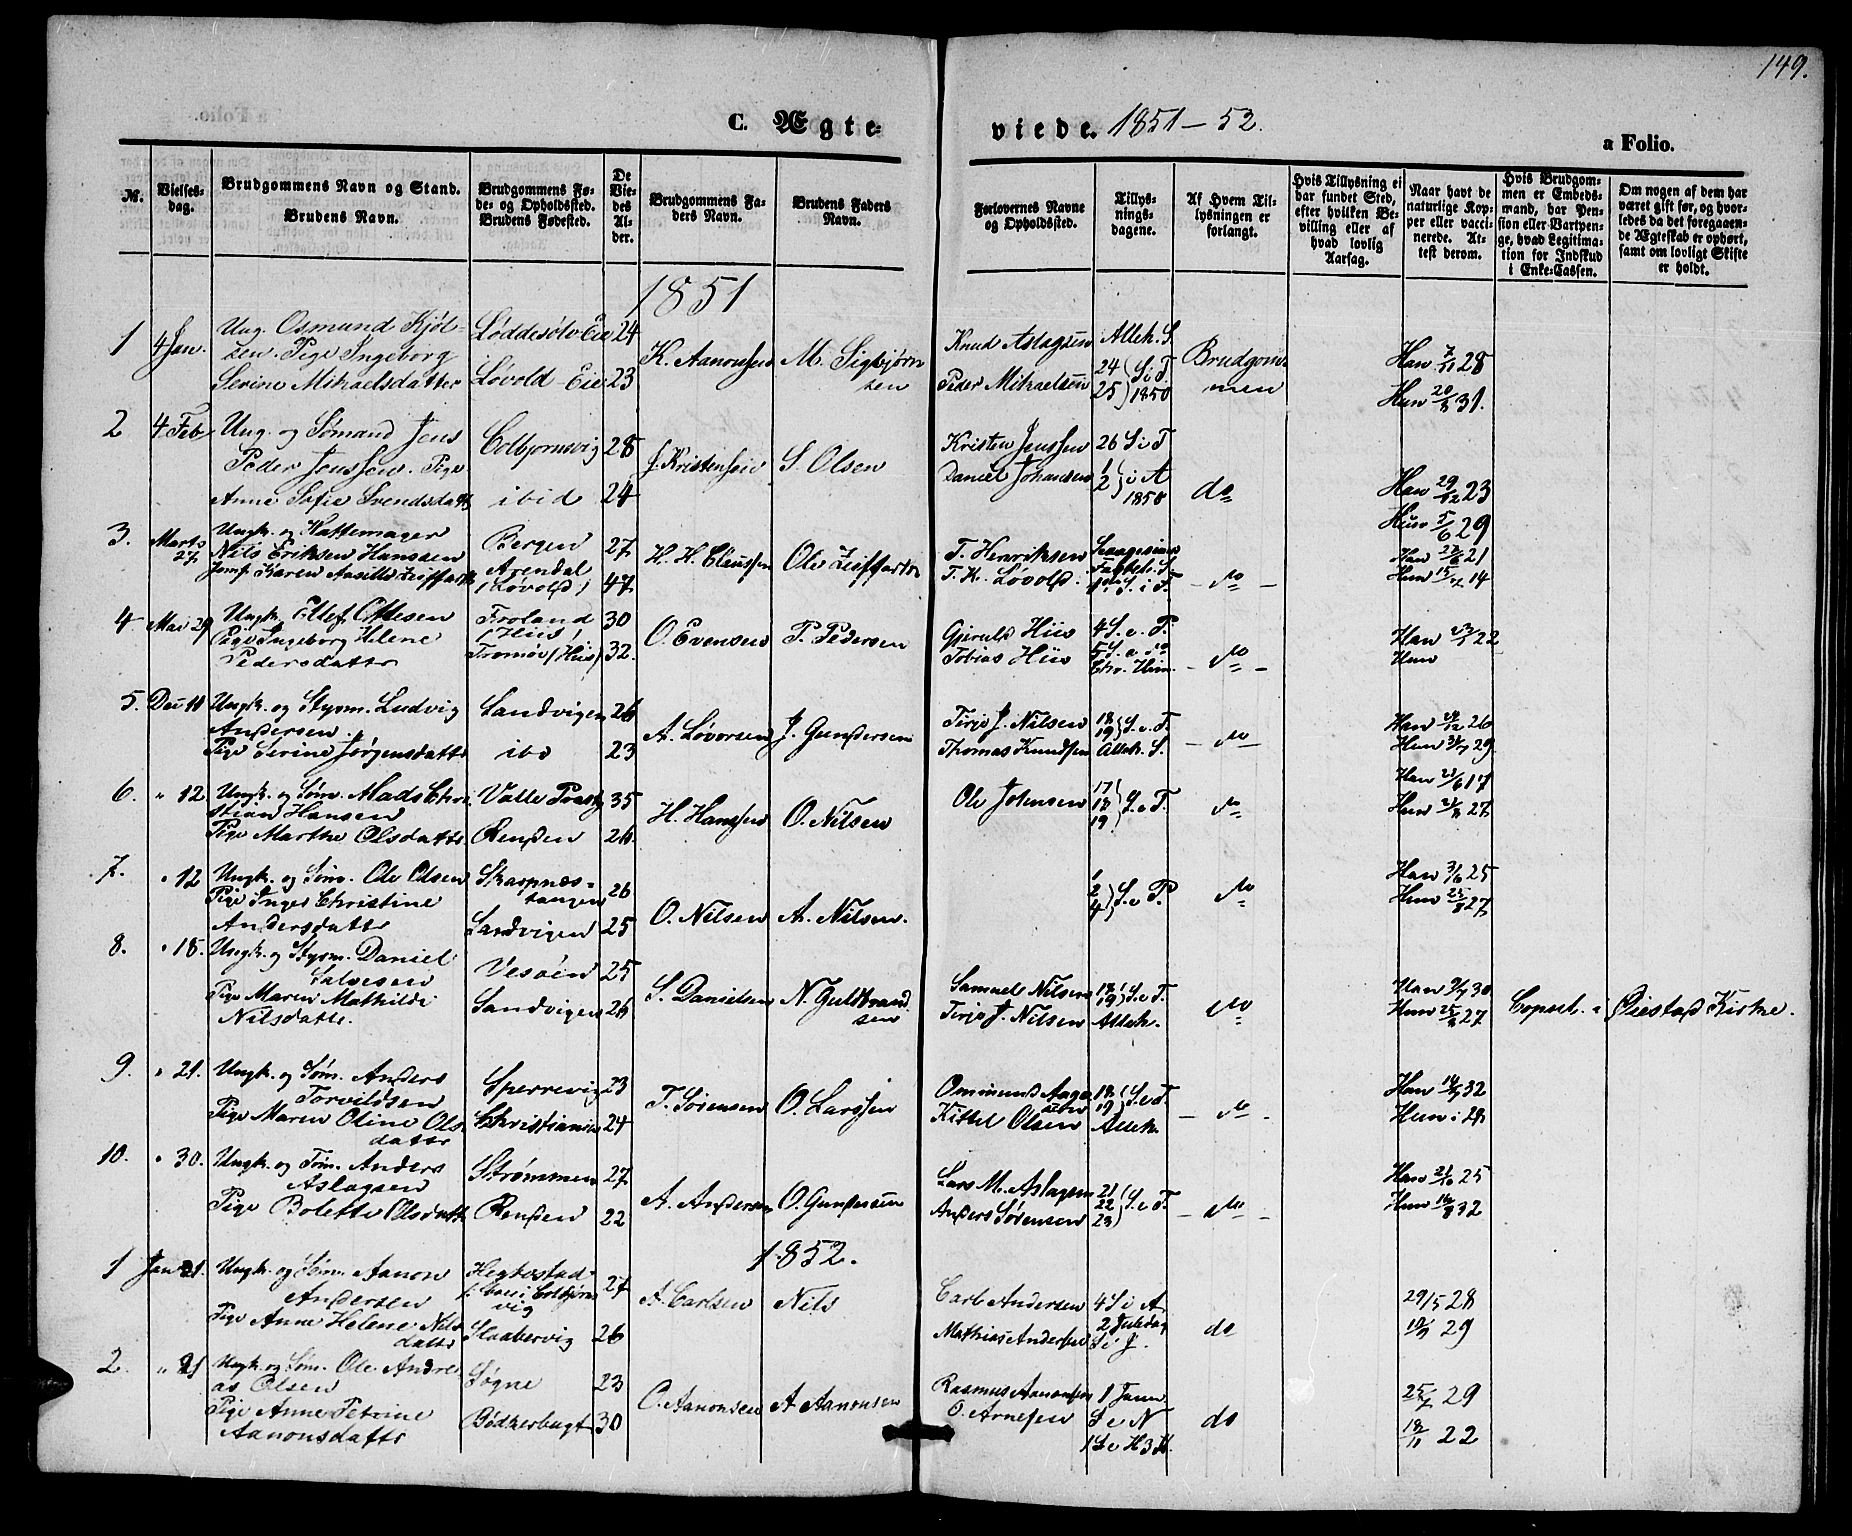 149.
C. Ægte-
viede. 1851-52.
a Folio.
№.
Vielses-
dag.
Brudgommens Navn og Stand.
Brudens Navn.
Brudgommens Fø-
de- og Opholdsted.
Brudens Fødested.
De
Vie-
des
Al-
der.
Brudgommens Fa-
ders Navn.
Brudens Faders
Navn.
Forlovernes Navne
og Opholdsted.
Tillys-
nings-
dagene.
Af Hvem Til-
lysningen er
forlangt.
Hvis Tillysning ei
har fundet Sted,
efter hvilken Be-
villing eller af
hvad lovlig
Aarsag.
Naar havt de
naturlige Kop-
per eller vacci-
nerede. At-
test derom.
Hvis Brudgom-
men er Embeds-
mand, har Pen-
sion eller Vartpen-
ge, hvad Legitima-
tion for Indskud
i Enke-Cassen.
Om nogen af dem har
været gift før, og hvor-
ledes da det foregaaen-
de Ægteskab er ophørt,
samt om lovligt Skifte
er holdt.
1851
1 4 Jan. Ung. Osmund Kjøl-
sen. Pige Ingeborg
Serine Mikaelsdatter
Løddesølv Eie 24
Løvold Eie 23
K. Aanonsen M. Sigbjørn
sen
Knud Aslagsen
Peder Mikaelsen
Alleh. S
24 25 S i T 1850
Brudgom-
men
Han 7/11 28
Hun 20/8 31.
2 4 Feb Ung. og Sømand Jens
Peder Jenssen. Pige
Anne Sofie Svendsdatt
Colbjørnsvig 28
ibid 24
J. Kristensen S. Olsen
Kristen Jenssen
Daniel Johansen
26 S i T
1 2 i A
1850
do
Han 29/12 23
Hun 5/6 29
3. Marts
27.
Ungk. og Hattemager
Nils Eriksen Hanssen
Jomf. Karen
Bergen 27
Arendal
(Løvold) 47
H. H. Claussen Ole
T. Henriksen
T. K. Løvold.
S. i T.
do
Han 21
Hun 14
4 Mai 29 Ungk. Ellef Ottesen
Pige Ingeborg Helene
Pedersdattr
Froland 30
(Hiis)
Tromøe (Hiis) 32.
O. Evensen P. Pedersen
Gjeruld Hiis
Tobias Hiis
4 S. e. P.
5 S. e. do
Chr. Him.
do
Han 22
Hun
5. Dec 11 Ungk. og Styrm. Ludvig
Andersen.
Pige Serine Jørgensdattr
Sandvigen 26
ibd 23
A. Løvorsen J. Gundersen
Terje J. Nilsen
Thomas Knudsen
18 19 S. e. T.
Alleh. S.
do
Han 26
Hun 29
6. " 12. Ungk. og Søm. Mads Chri
stian Hansen
Pige Marthe Olsdattr
Valle Præstg 35
Renden 26
H. Hanssen O. Nilsen
Ole Johnsen
17 18 19 S. e T.
do
Han 17
Hun 27
7. " 12 Ungk. og Søm. Ole Olsen
Pige Inger Christine
Andersdattr
Skarpnes-
tangen 26
Sandvigen 25
O. Nilsen A. Nilsen.
1 2 4 S. e. P.
do
Han 3/6 25
Hun 25/8 27
8. " 18. Ungk. og Styrm. Daniel
Salvesen
Pige Maren Mathilde
Nilsdattr.
Vesøien 25
Sandvigen 26
S. Danielsen N. Guldbrand
sen
Samuel Nilsen
Terje J. Nilsen
18 19 S. e T.
Alleh.
do
Han 9/7 30
Hun 25/8 27
Copul. i Øiestad Kirke.
9. " 21. Ungk. og Søm. Anders
Torvildsen
Pige Maren Oline Ols
dattr
Sperrevig 23
Christiania 24
T. Sørensen O. Larssen
Ommund Aaga
sen
Kittel Olsen
18 19 S. e T.
Alleh.
do
Han 14/7 32
Hun i 28
10. " 30. Ungk. og Tøm. Anders
Aslagsen
Pige Bolette Olsdatt
Strømmen 27
Renden 22
A. Andersen O. Gundersen
Lars M. Aslagsen
Anders Sørensen
21 22 23 S. e T.
do
Han 21/10 25
Hun 16/8 32
1852.
1 Jan 21. Ungk. og Søm. Aanon
Andersen
Pige Anne Helene Nils
dattr
Hegtestad
Colbjørns
vig 27
Slaabervig 26
A. Carlsen Nils
Carl Andersen
Mathias Andersen
4 S i A
2 Juledag
S i J.
do
29/5 28
19/9 29
2. " 21 Ungk. og Søm. Ole Andre
as Olsen
Pige Anne Petrine
Aanonsdattr
Søgne 23
Bødkerbugt 30
O. Aanonsen A Aanonsen
Rasmus Aanonsen
O. Arnesen
1 Janu
S e N
1 S e H 3 K.
do
25/7 29
18/11 22